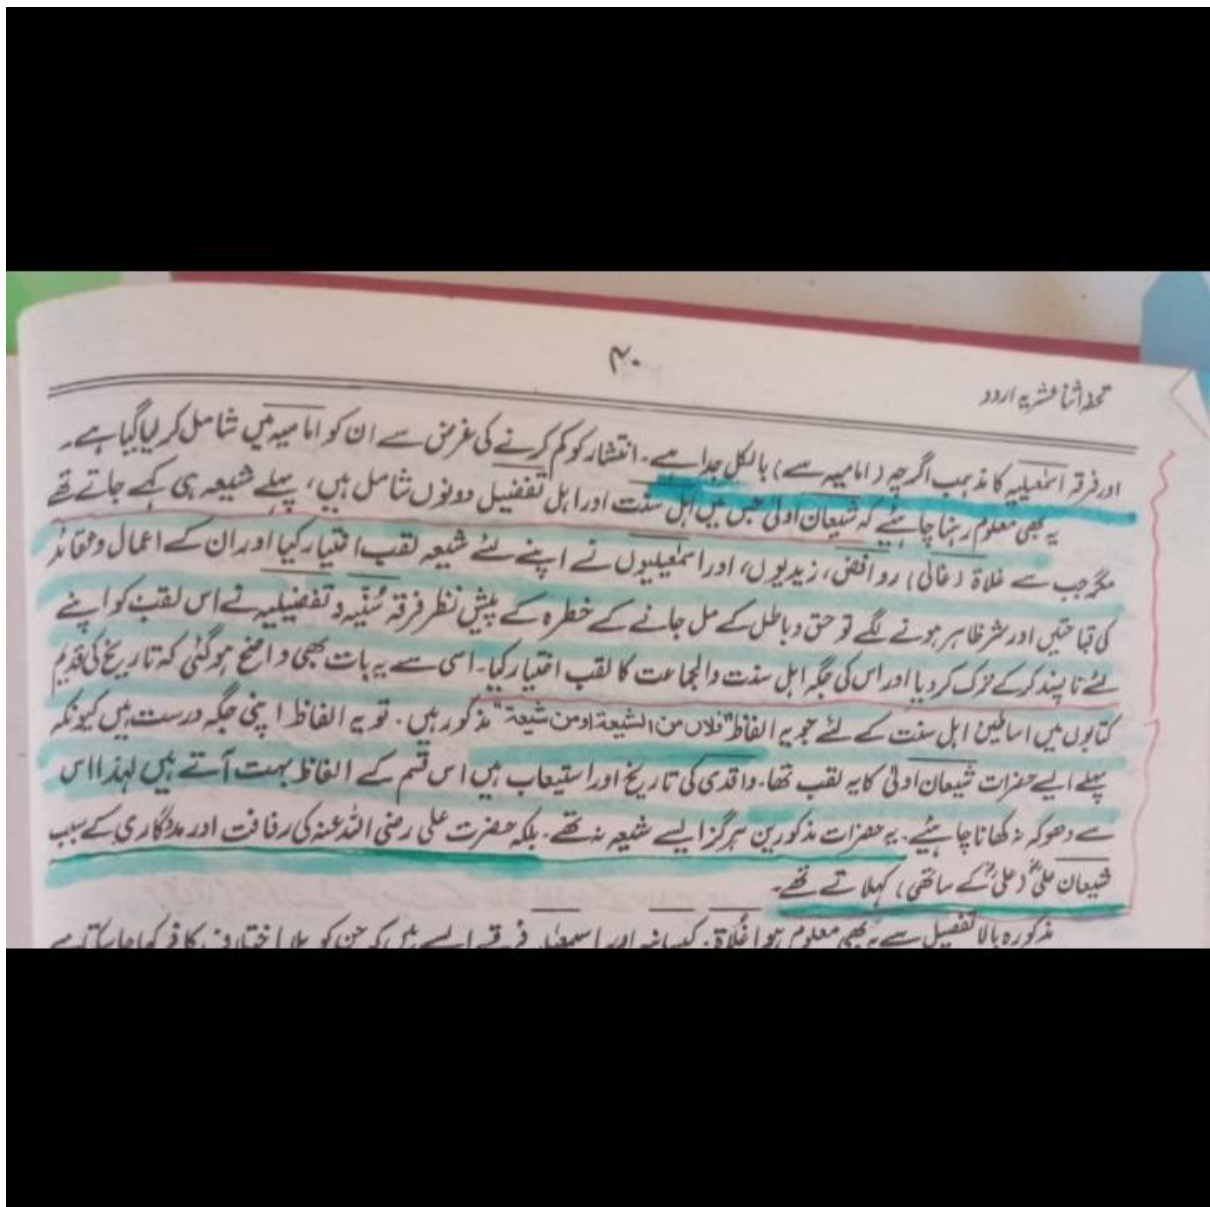 ۴۰
تحفہ اثنا عشریہ اردو
اور فرقہ اسمٰعیلیہ کا مذہب اگرچہ (امامیہ سے) بالکل جدا ہے۔ انتشار کو کم کرنے کی غرض سے ان کو امامیہ میں شامل کر لیا گیا ہے۔
یہ بھی معلوم رہنا چاہئیے کہ شیعان اولیٰ جس میں اہل سنت اور اہل تفضیل دونوں شامل ہیں، پہلے شیعہ ہی کہے جاتے تھے
مگر جب سے غلاۃ (غالی) روافض، زیدیوں، اور اسمٰعیلیوں نے اپنے لئے شیعہ لقب اختیار کیا اور ان کے اعمال و عقائد
کی قباحتیں اور شر ظاہر ہونے لگے تو حق و باطل کے مل جانے کے خطرہ کے پیش نظر فرقہ سُنّیہ و تفضیلیہ نے اس لقب کو اپنے
لئے ناپسند کرکے ترک کر دیا اور اس کی جگہ اہل سنت والجماعت کا لقب اختیار کیا۔ اسی سے یہ بات بھی واضح ہوگئی کہ تاریخ کی قدیم
کتابوں میں اساطین اہل سنت کے لئے جو یہ الفاظ "فلان من الشیعۃ او من شیعۃ" مذکور ہیں۔ تو یہ الفاظ اپنی جگہ درست ہیں کیونکہ
پہلے ایسے حضرات شیعان اولیٰ کا یہ لقب تھا۔ واقدی کی تاریخ اور استیعاب میں اس قسم کے الفاظ بہت آتے ہیں لہذا اس
سے دھوکہ نہ کھانا چاہئیے۔ یہ حضرات مذکورین ہرگز ایسے شیعہ نہ تھے۔ بلکہ حضرت علی رضی اللہ عنہ کی رفاقت اور مددگاری کے سبب
شیعان علیؓ (علیؓ کے ساتھی) کہلاتے تھے۔
مذکورہ بالا تفصیل سے یہ بھی معلوم ہوا غُلاۃ، کیسانیہ اور اسمٰعیلیہ فرقے ایسے ہیں کہ جن کو بلا اختلاف کافر کہا جا سکتا ہے